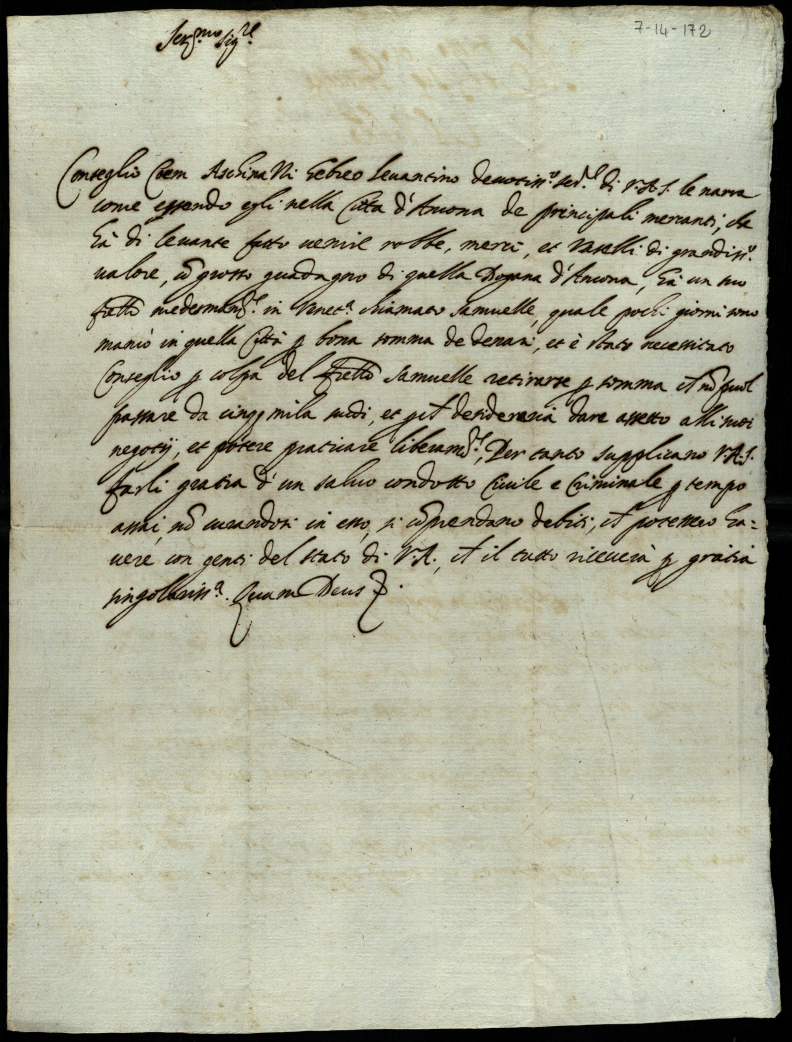 7-14-172
Ser.mo Sig.re
Conseglio Coem Aschinasi hebreo levantino devotiss.o ser.re di V.A.S. le narra
come essendo egli nella Città d'Ancona de principali mercanti, che
hà di levante fatto venire robbe, merci, et Vaselli di grandiss.o
valore, cō grosso guadagno di quella Dogana d'Ancona, hà un suo
fratello medesmam.te in Venet.a chiamato Samuelle, quale pochi giorni sono
mancò in quella Città p bona somma de denari, et è stato necessitato
Conseglio p colpa del fratello Samuelle retirarse p somma ch nō puol
passare da cinq mila scudi, et pch desideraria dare assetto alli suoi
negotij, et potere praticare liberam.te, Per tanto supplicano V.A.S.
farli gratia d'un salvo condotto Civile e Criminale p tempo
assai, nō curandosi in esso, si cōprendano debiti, ch potesseo ha=
vere con genti del stato di V.A., ch il tutto riceverà p gratia
singolariss.a. Quam Deus